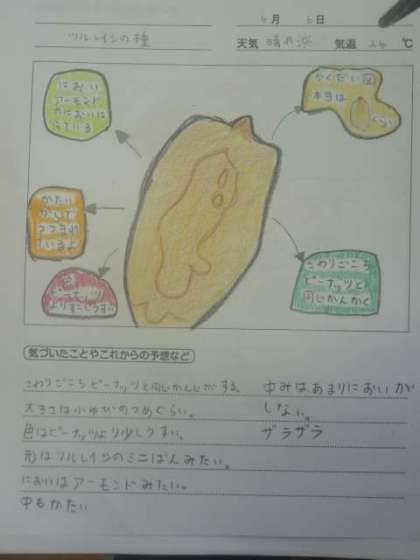 6月 5日
ツルレイシの種 天気 晴れ 気温 24 ℃
におい
アーモンド
かたい
色
ピーナッツ
よりすこしうすい
かくだい図
本当は
ぐらい
さわりごこち
ピーナッツと
同じかんかく
気づいたことやこれからの予想など
さわりごこちピーナッツと同じかんじがする。
大きさは小ゆびのつめぐらい。
色はピーナッツより少しうすい。
形はツルレイシのミニばんみたい。
においはアーモンドみたい。
中もかたい
中みはあまりにおいが
しない。
ザラザラ